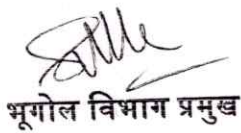 भूगोल विभाग प्रमुख